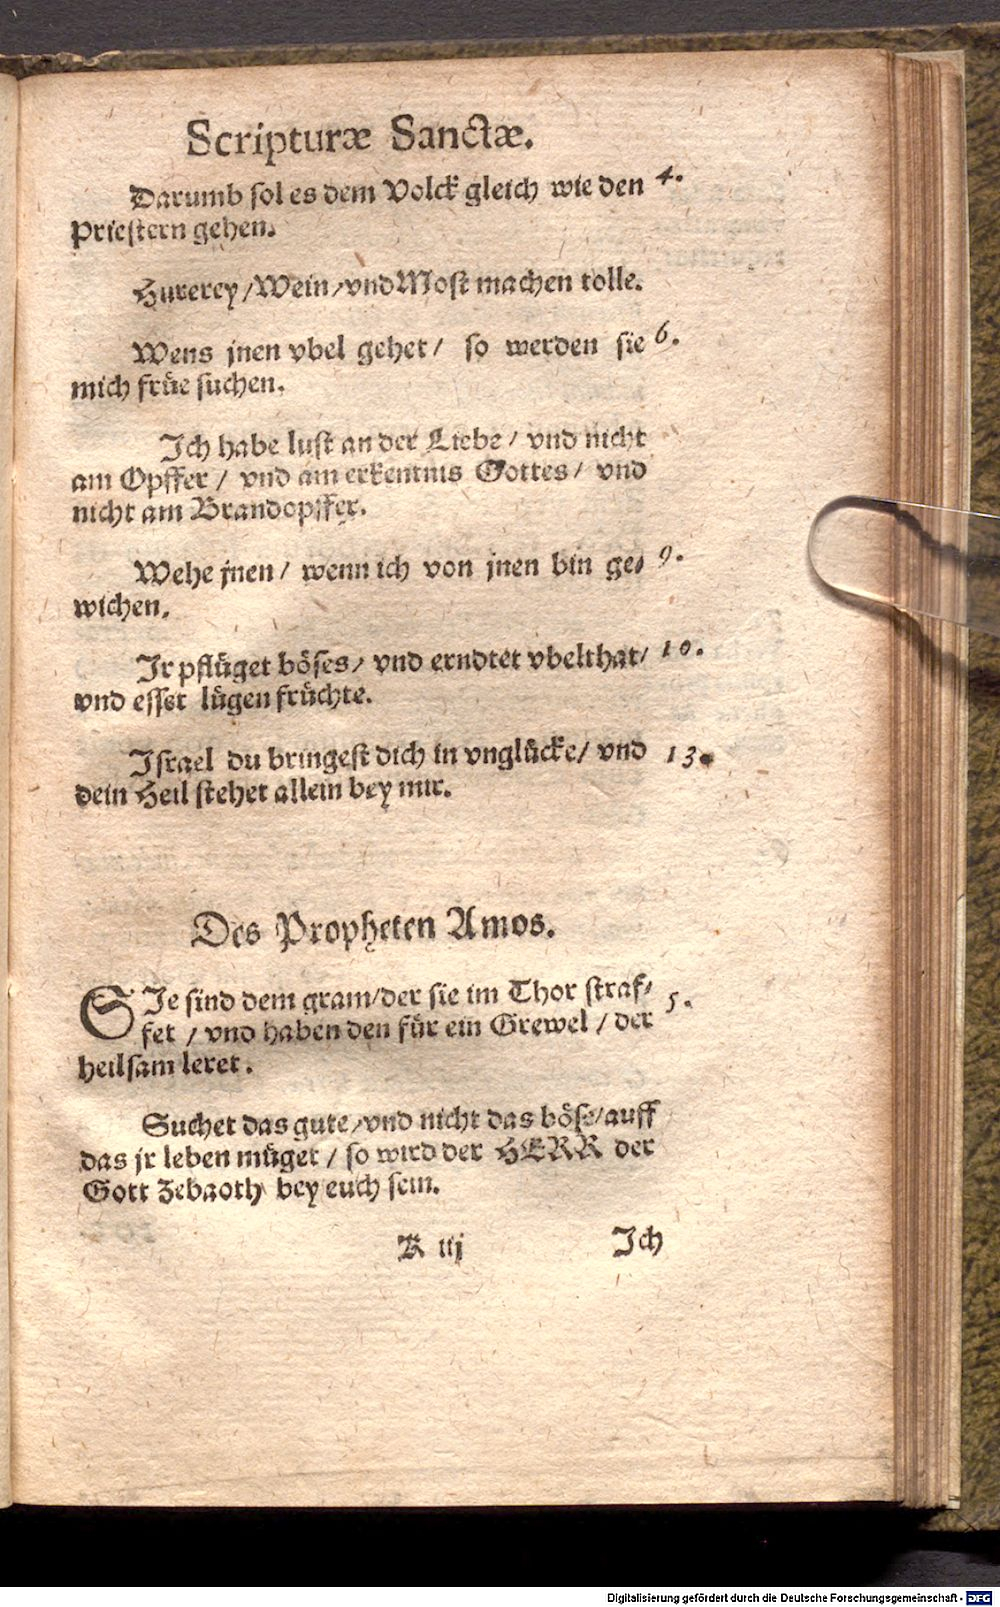 Scripturæ Sanctæ.
Darumb sol es dem Volck gleich wie den 4.
Priestern gehen.
Hurerey/Wein/vnd Most machen tolle.
Wens jnen vbel gehet/ so werden sie 6.
mich früe suchen.
Ich habe lust an der Liebe/ vnd nicht
am Opffer/ vnd am erkentnis Gottes/ vnd
nicht am Brandopffer.
Wehe jnen/ wenn ich von jnen bin ge⸗ 9.
wichen.
Jr pflüget böses/ vnd erndtet vbelthat/ 10.
vnd esset lügen früchte.
Israel du bringest dich in vnglücke/ vnd 13.
dein Heil stehet allein bey mir.
Des Propheten Amos.
SJe sind dem gram/der sie im Thor straf⸗ 5.
fet/ vnd haben den für ein Grewel/ der
heilsam leret.
Suchet das gute/vnd nicht das böse/auff
das jr leben müget/ so wird der HERR der
Gott Zebaoth bey euch sein.
K iij Ich
Digitalisierung gefördert durch die Deutsche Forschungsgemeinschaft - DFG